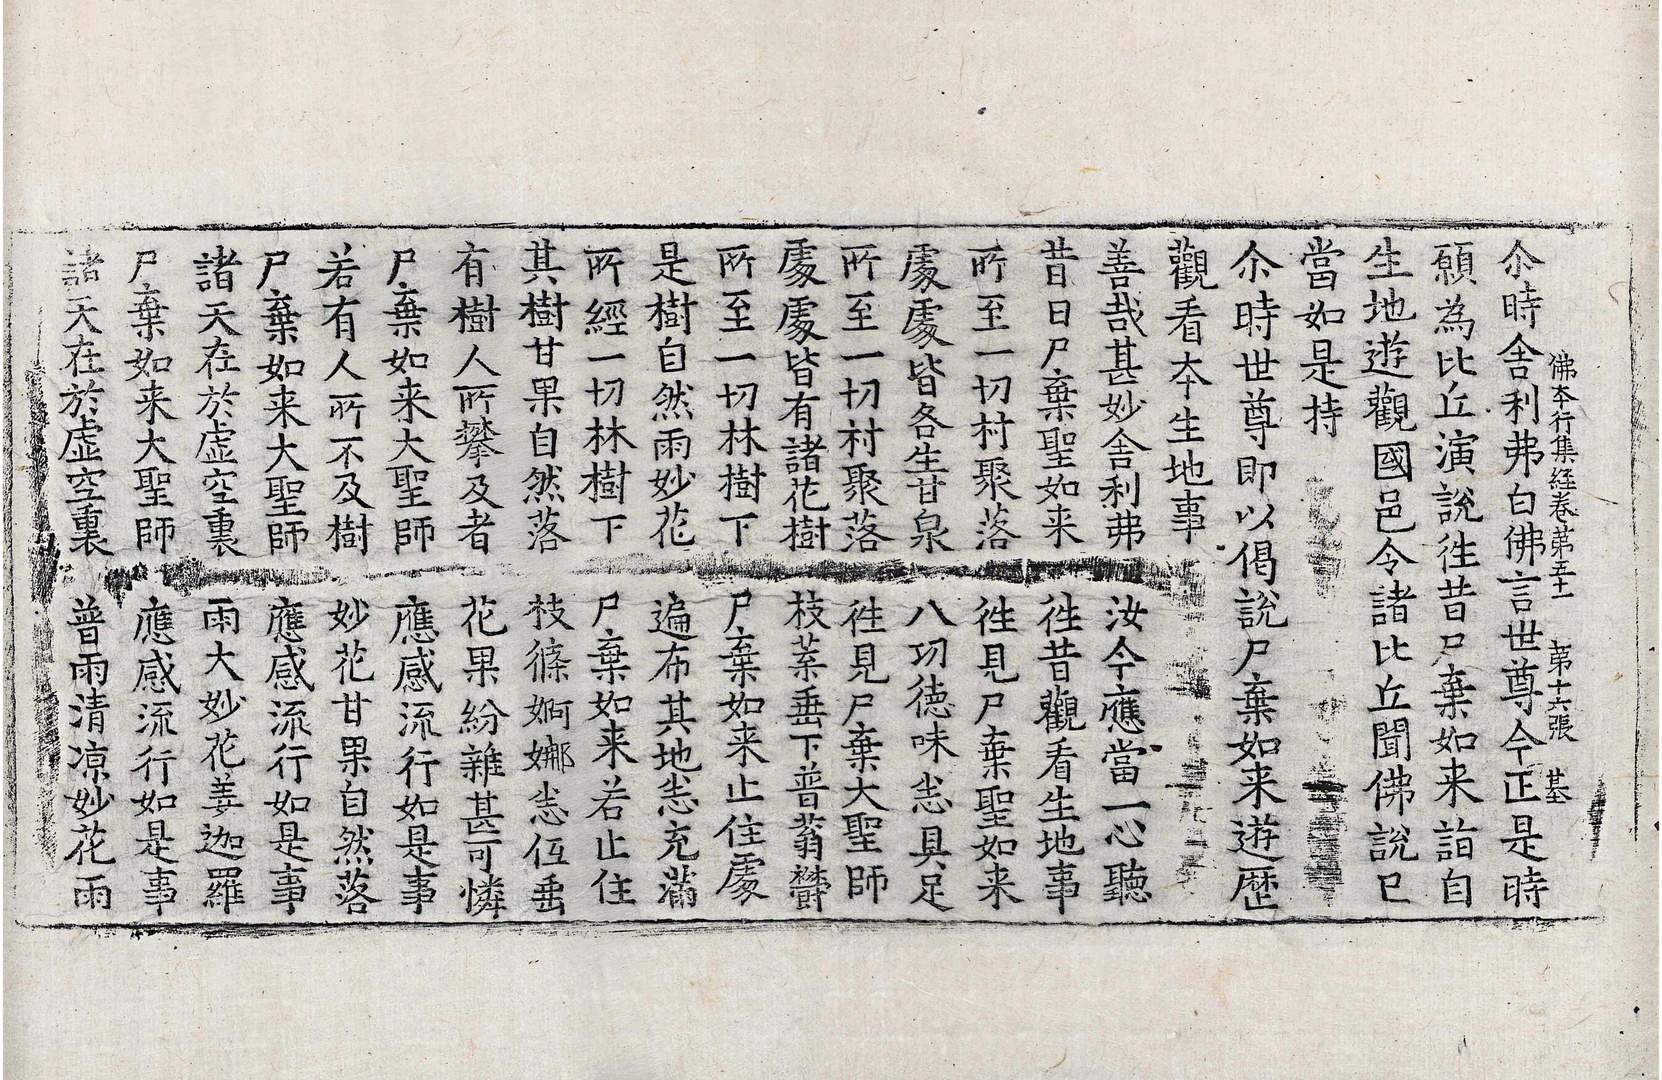 佛本行集経卷第五十一 第十六張 基
尒時舍利弗白佛言世尊今正是時
願為比丘演說徃昔尸棄如来詣自
生地遊觀國邑令諸比丘聞佛說已
當如是持
尒時世尊即以偈說尸棄如来遊歷
觀看夲生地事
善哉甚妙舍利弗 汝今應當一心聽
昔日尸棄聖如来 徃昔觀看生地事
所至一切村聚落 徃見尸棄聖如来
處處皆各生甘泉 八功德味悉具足
所至一切村聚落 徃見尸棄大聖師
處處皆有諸花樹 枝葉垂下普蓊欝
所至一切林樹下 尸棄如来止住處
是樹自然雨妙花 遍布其地悉充滿
所經一切林樹下 尸棄如来若止住
其樹甘果自然落 枝條婀娜悉低垂
有樹人所攀及者 花果紛雜甚可憐
尸棄如来大聖師 應感流行如是事
若有人所不及樹 妙花甘果自然落
尸棄如来大聖師 應感流行如是事
諸天在於虛空裏 雨大妙花羙迦羅
尸棄如来大聖師 應感流行如是事
諸天在於虛空裏 普雨清凉妙花雨